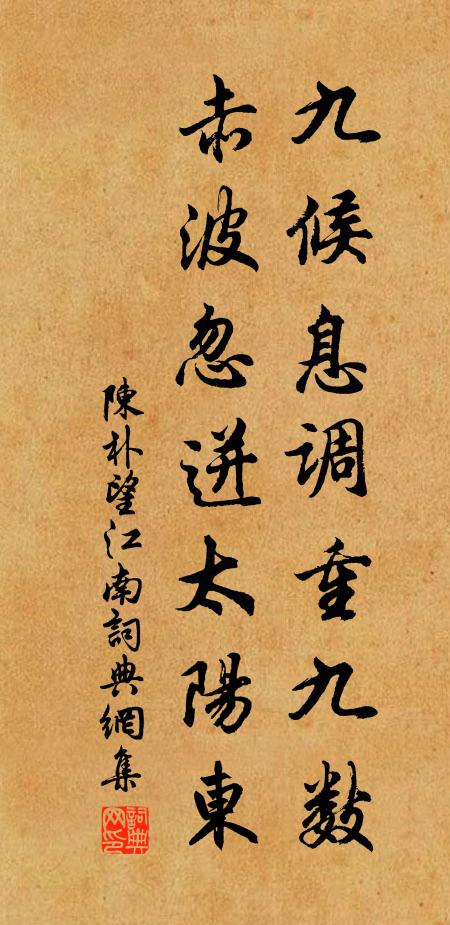 九候息调重九数
赤波忽迸太陽東
陳朴望江南詞典網集
詞典網印